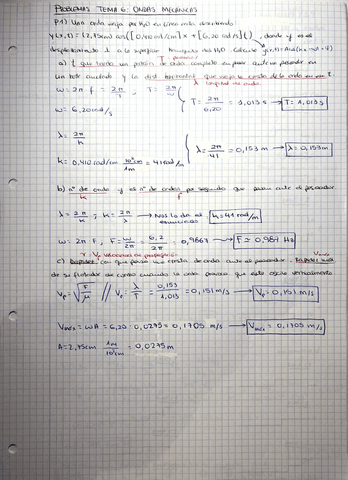 PROBLEMAS TEMA 6: ONDAS MECÁNICAS
P.1) Una onda viaja por H₂O en línea recta describiendo
y(x,t) = (2,75cm) cos([0,410 rad/cm]x + [6,20 rad/s]t), donde y es el
desplazamiento a la superficie tranquila del H₂O. Calcule
a) t que tarda un patrón de onda completo en pasar ante un pescador en
un bote anclado y la dist. horizontal que viaja la cresta de la onda en ese t.
ω = 2π f = 2π/T ; T = 2π/ω
λ longitud de onda
ω = 6,20 rad/s
T = 2π/6,20 = 1,013 s → T = 1,013 s
λ = 2π/k
k = 0,410 rad/cm 10²cm/1m = 41 rad/m
λ = 2π/41 = 0,153 m → λ = 0,153m
b) nº de onda y el nº de ondas por segundo que pasan ante el pescador.
k f
λ = 2π/k ; k = 2π/λ → Nos lo da el enunciado → k = 41 rad/m
ω = 2π F ; F = ω/2π = 6,2/2π = 0,9867 → F ≃ 0,987 Hz
c) Rapidez con que pasa una cresta de onda ante el pescador. Rapidez máx
de su flotador de corcho cuando la onda provoca que este oscile verticalmente
Vp = √F/μ // Vp = λ/T = 0,153/1,013 = 0,151 m/s → Vp = 0,151 m/s
Vmáx = ωA = 6,20 · 0,0275 = 0,1705 m/s → Vmáx = 0,1705 m/s
A = 2,75cm 1m/10²cm = 0,0275 m